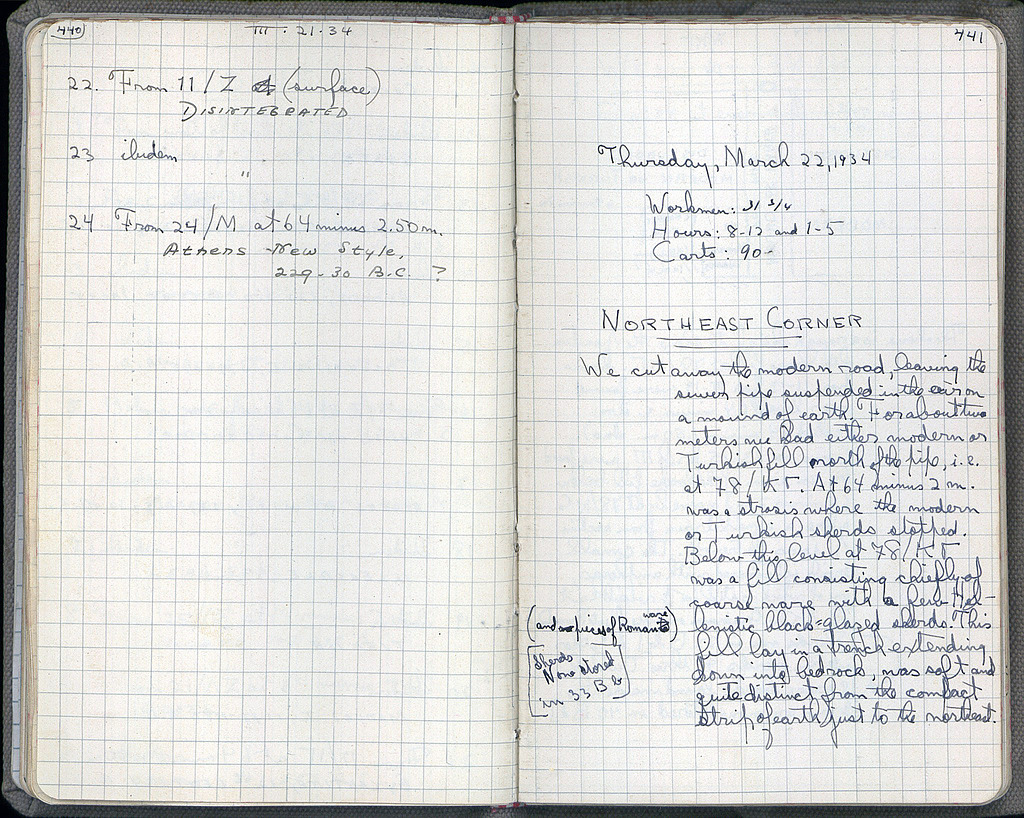 440
III · 21 · 34
22. From 11/Z (surface)
DISINTEGRATED
23 ibidem
"
24 From 24/M at 64 minus 2.50 m.
Athens New Style,
229-30 B.C. ?
441
Thursday, March 22, 1934
Workmen: 31 3/4
Hours: 8-12 and 1-5
Carts: 90-
NORTHEAST CORNER
We cut away the modern road, leaving the
sewer pipe suspended in the air on
a mound of earth. For about two
meters we had either modern or
Turkish fill north of the pipe, i.e.
at 78/ΚΓ. At 64 minus 2 m.
was a strosis where the modern
or Turkish sherds stopped.
Below this level at 78/ΚΓ
was a fill consisting chiefly of
coarse ware with a few Hel-
(and pieces of Roman ware)
lenistic black-glazed sherds. This
fill lay in a trench extending
down into bedrock, was soft and
quite distinct from the compact
strip of earth just to the northeast.
[Sherds
stored
in 33 B 6]